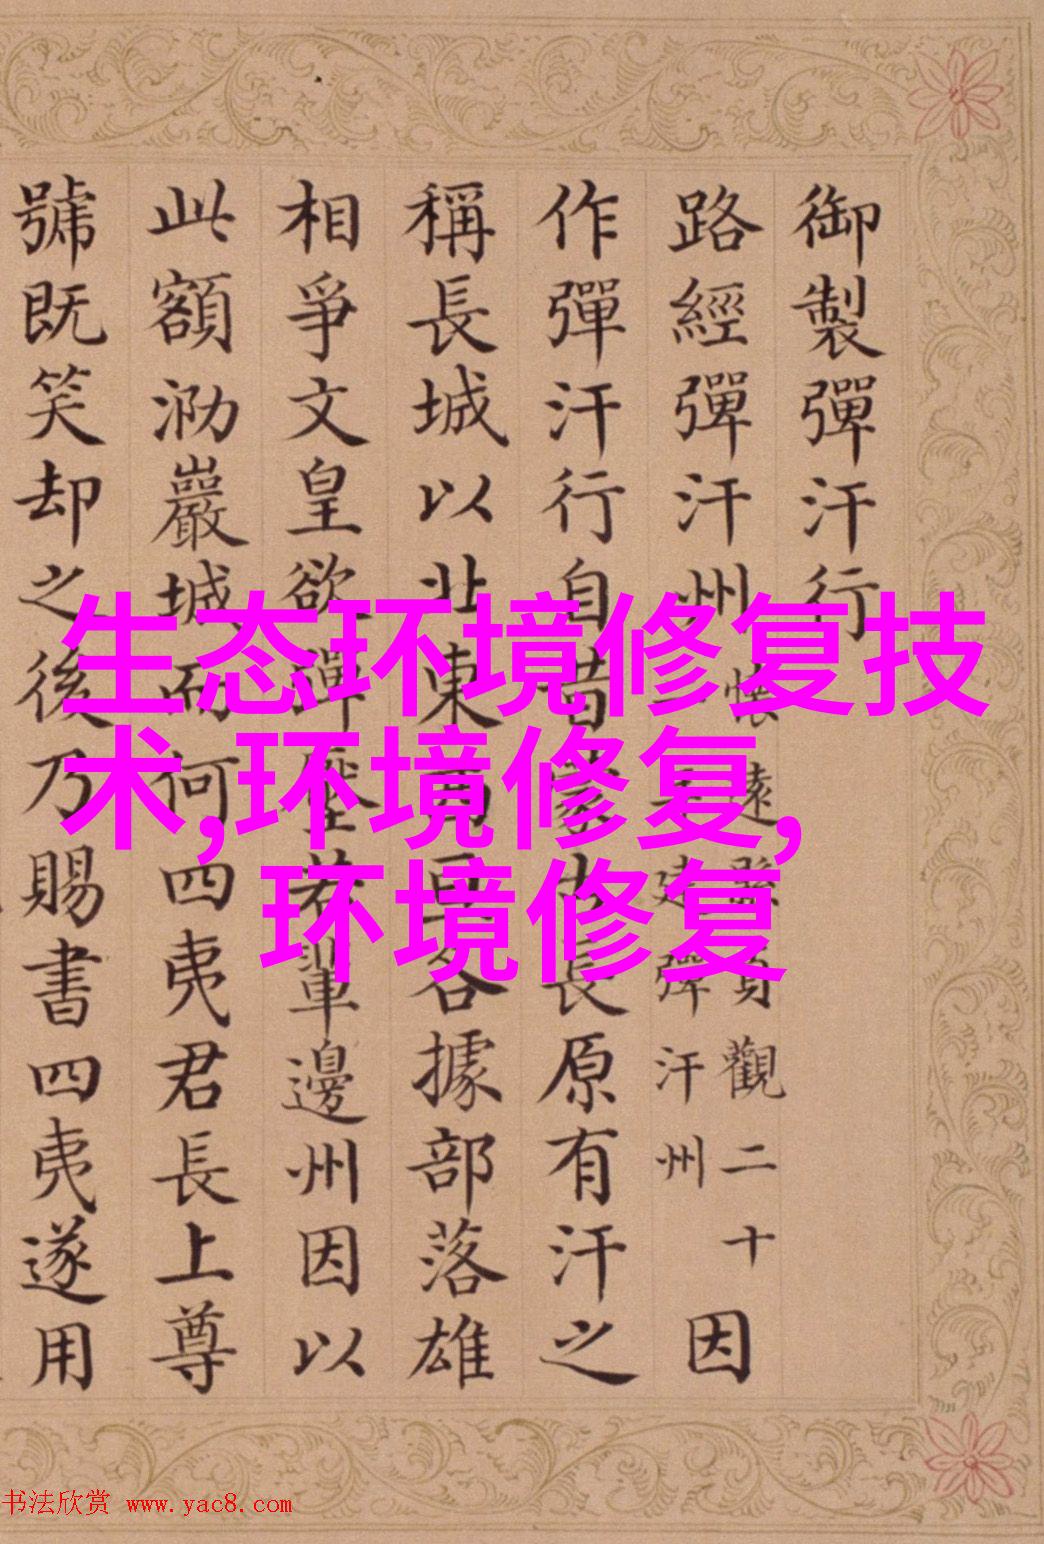 御製彈汗行
路經彈汗州
懷遠縣貞觀二十
建彈汗州
因
作彈汗行自昔蒙古長原有汗之
稱長城以北東西各據部落雄
相爭文皇欲彈壓若輩邊州因以
此額泐巖城而何四夷君長上尊
號既笑却之後乃賜書四夷遂用
生态环境修复技
术,环境修复,
环境修复
书法欣赏 www.yac8.com